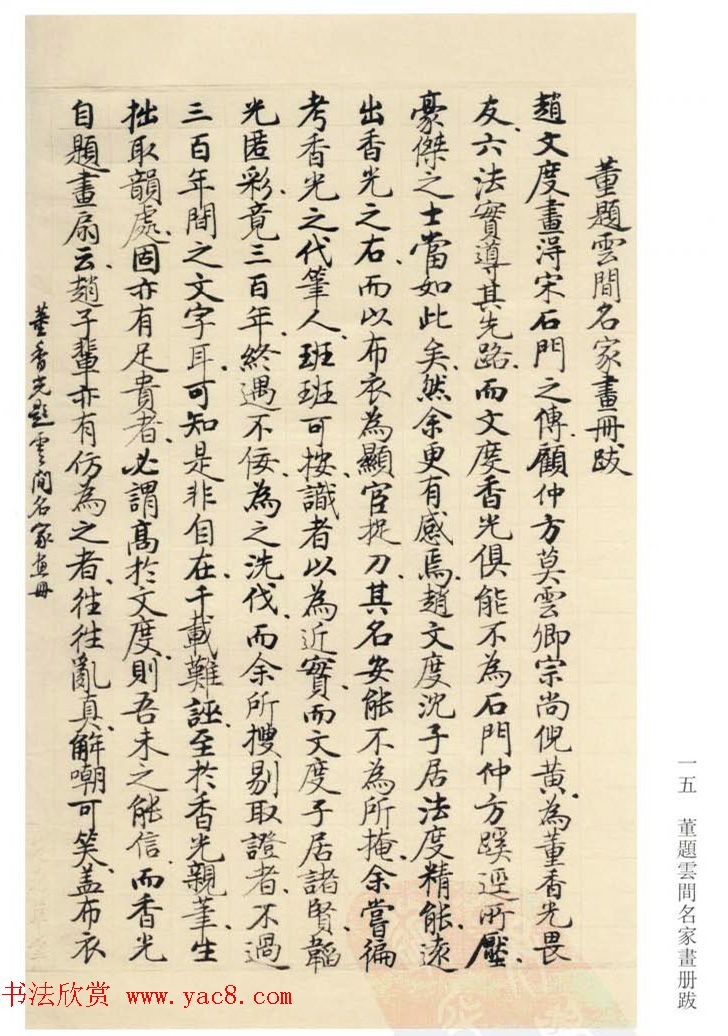 董題雲間名家畫冊跋
趙文度畫得宋石門之傳顧仲方莫雲卿宗尚倪黃為董香光畏
友六法實導其先路而文度香光俱能不為石門仲方蹊逕所壓
豪傑之士當如此矣然余更有感焉趙文度沈子居法度精能遠
出香光之右而以布衣為顯宦捉刀其名安能不為所掩余嘗徧
考香光之代筆人班班可按識者以為近實而文度子居諸賢韜
光匿彩竟三百年終遇不佞為之洗伐而余所搜剔取證者不過
三百年間之文字耳可知是非自在千載難誣至於香光親筆生
拙取韻處固亦有足貴者必謂高於文度則吾未之能信而香光
自題畫扇云趙子輩亦有仿為之者往往亂真解嘲可笑蓋布衣
董香光題雲間名家畫冊
一五 董題雲間名家畫册跋
书法欣赏 www.yac8.com